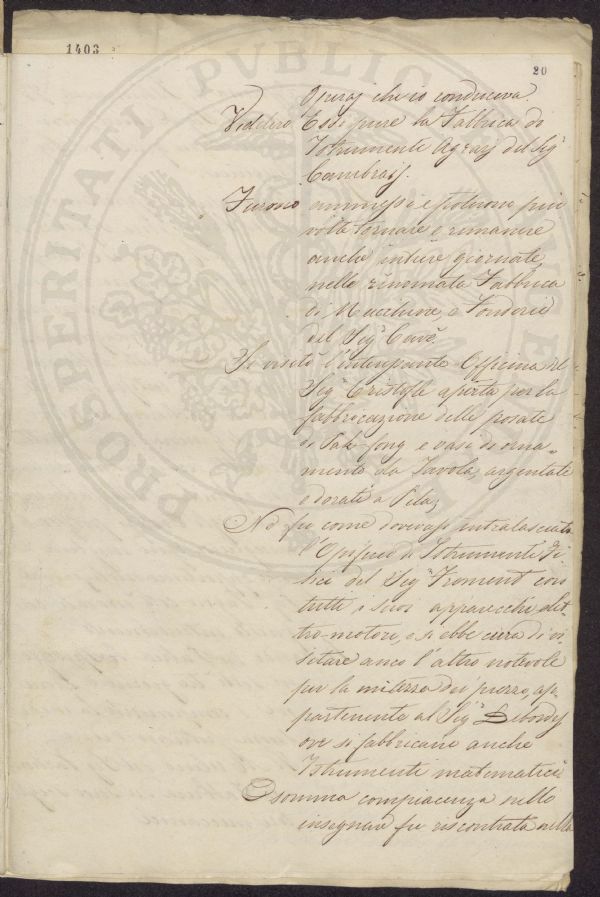 1403
20
Operaj che io conduceva.
Videlero Essi pure la Fabbrica di
Istrumente Agrarj del Sig.r
Cambraij.
Furono ammessi e poterono più
volte tornare e rimanere
anche intiere giornate
nella rinomata Fabbrica
di Macchine, e Fonderie
del Sig.r Cavè.
Si visitò l'interessante Officina del
Sig.r Cristofle aperta per la
fabbricazione delle posate
di Pak-fong e vasi di orna=
mento da Tavola, argentati
o dorati a Pila;
Nè fu come dovevasi intralasciato
l'Opificio di Istrumenti Fi=
sici del Sig.r Froment con
tutti i suoi apparecchi elet
tro-motori, e si ebbe cura di vi
sitare anco l'altro notevole
per la mitezza dei prezzi, ap
partenente al Sig.r Debordy
ove si fabbricano anche
Istrumenti matematici
O somma compiacenza nello
insegnare fu riscontrata nella
PROSPERITATI PUBLIC E